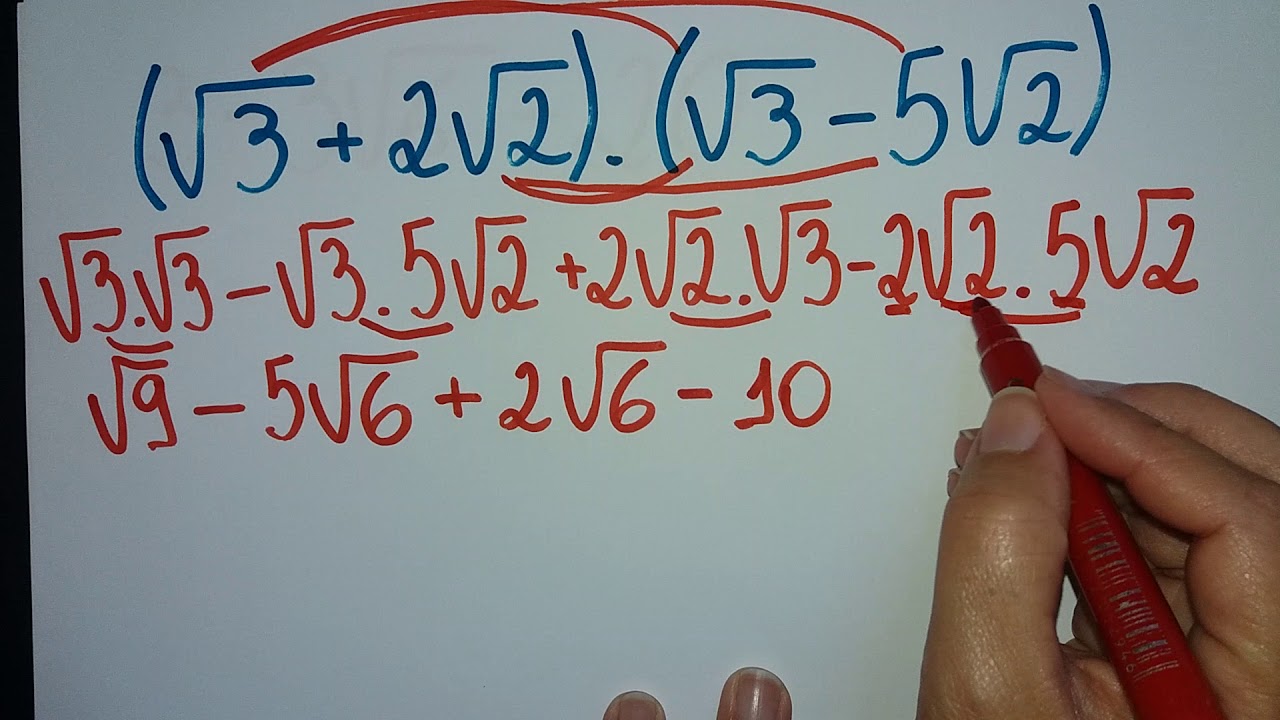 (√3 + 2√2) . (√3 - 5√2)
√3.√3 - √3 . 5√2 + 2√2 . √3 - 2√2 . 5√2
√9 - 5√6 + 2√6 - 10